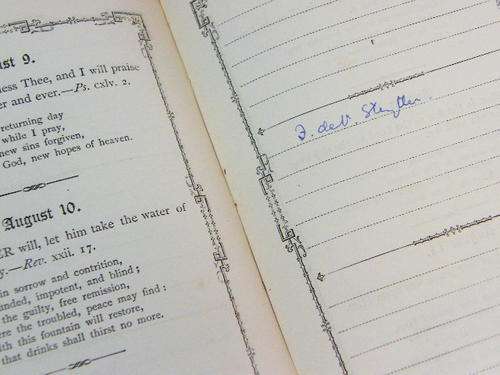 st 9.
less Thee, and I will praise
er and ever.—Ps. cxlv. 2.
returning day
while I pray,
new sins forgiven,
God, new hopes of heaven.
August 10.
ER will, let him take the water of
y.—Rev. xxii. 17.
in sorrow and contrition,
unded, impotent, and blind;
the guilty, free remission,
re the troubled, peace may find:
th this fountain will restore,
that drinks shall thirst no more.